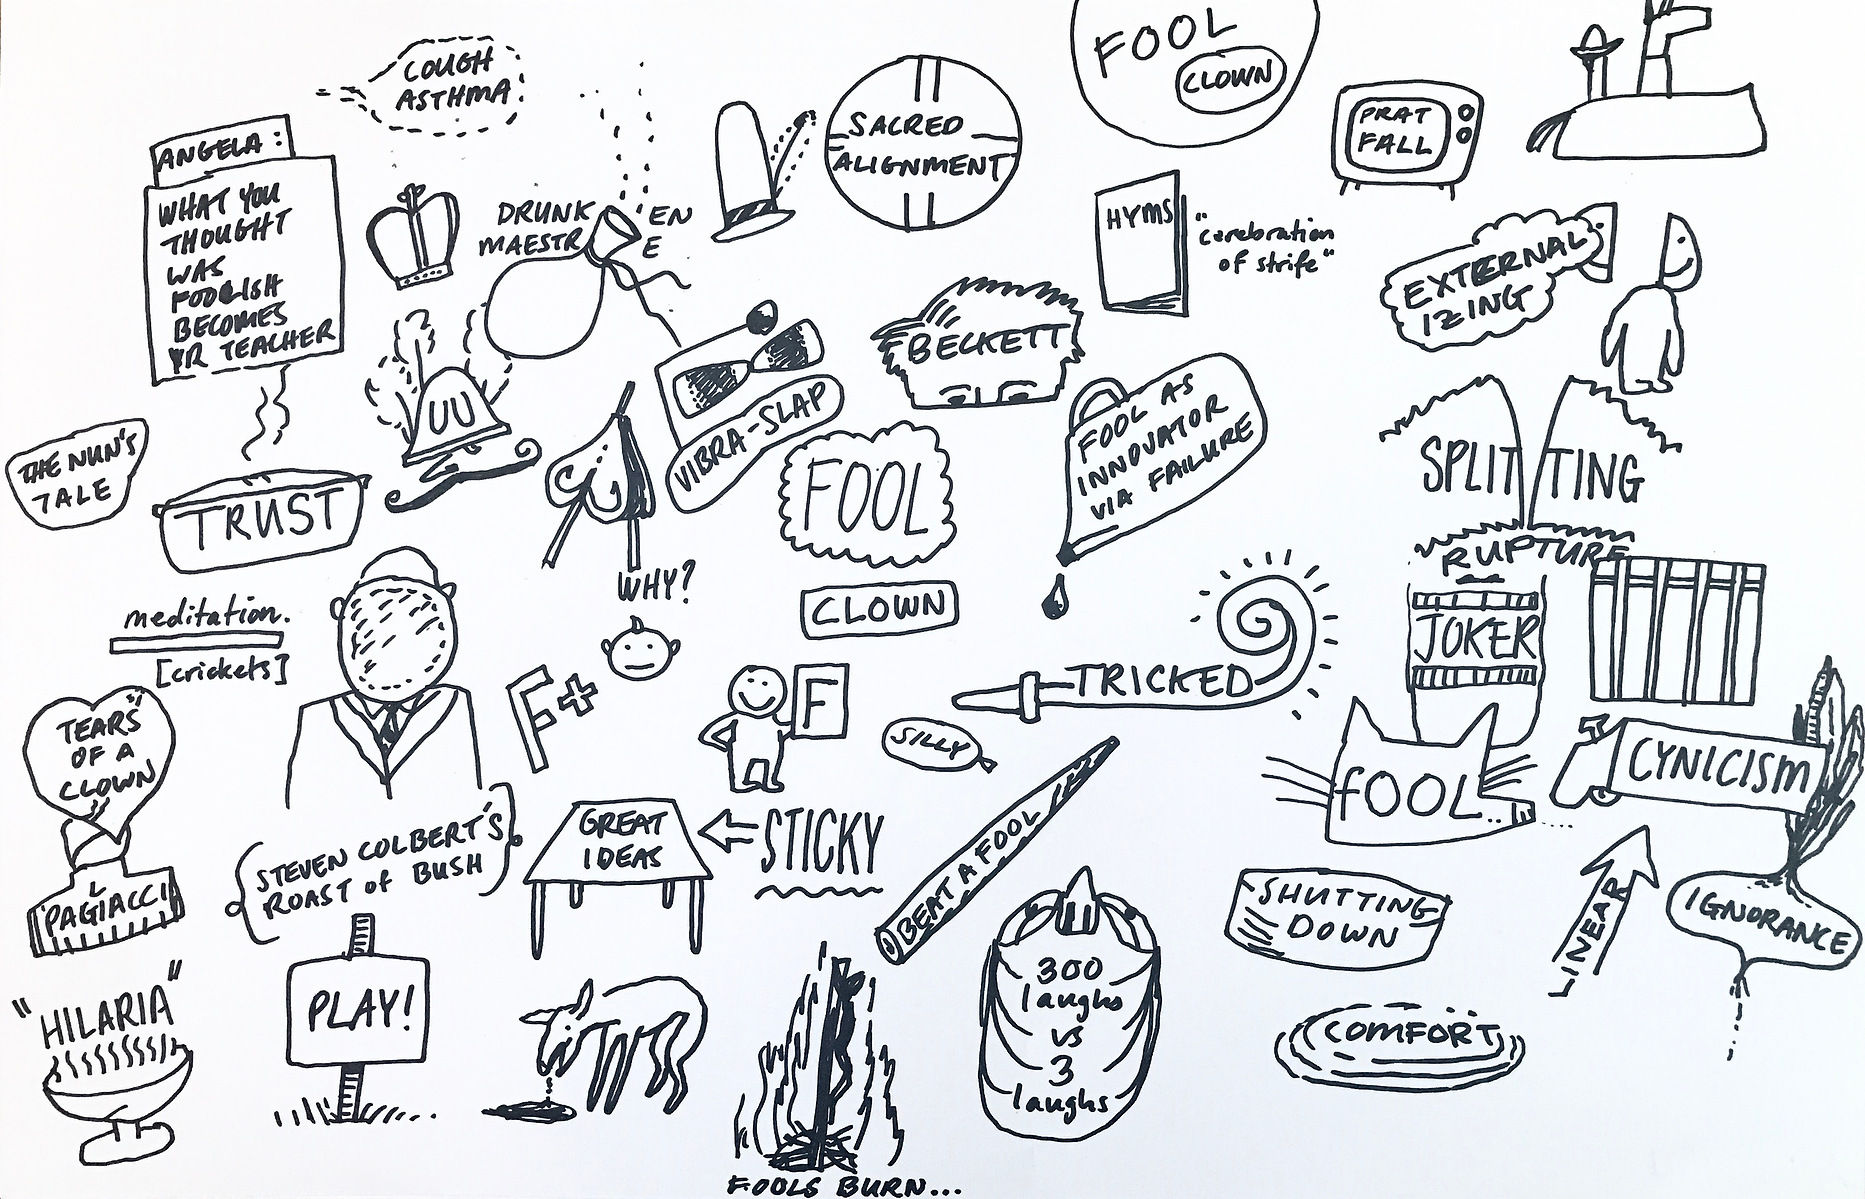 COUGH
ASTHMA
FOOL
CLOWN
SACRED
ALIGNMENT
PRAT
FALL
ANGELA:
WHAT YOU
THOUGHT
WAS
FOOLISH
BECOMES
YR TEACHER
DRUNK EN
MAESTR E
HYMS
"cerebration
of strife"
EXTERNAL
IZING
BECKETT
VIBRA-SLAP
FOOL AS
INNOVATOR
VIA FAILURE
THE NUN'S
TALE
TRUST
FOOL
SPLITTING
RUPTURE
WHY?
CLOWN
meditation.
[crickets]
JOKER
TRICKED
F+
F
SILLY
TEARS
OF A
CLOWN
PAGIACCI
FOOL..
CYNICISM
STEVEN COLBERT'S
ROAST OF BUSH
GREAT
IDEAS
STICKY
BEAT A FOOL
SHUTTING
DOWN
LINEAR
IGNORANCE
"HILARIA"
PLAY!
300
laughs
vs
3
laughs
COMFORT
FOOLS BURN...